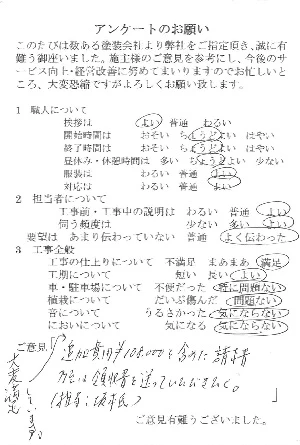 アンケートのお願い
このたびは数ある塗装会社より弊社をご指定頂き、誠に有
難う御座いました。施主様のご意見を参考にし、今後のサ
ービス向上・経営改善に努めてまいりますのでお忙しいと
ころ、大変恐縮ですがよろしくお願い致します。
1 職人について
挨拶は よい 普通 わるい
開始時間は おそい ちょうどよい はやい
終了時間は おそい ちょうどよい はやい
昼休み・休憩時間は 多い ちょうどよい 少ない
服装は わるい 普通 よい
対応は わるい 普通 よい
2 担当者について
工事前・工事中の説明は わるい 普通 よい
伺う頻度は 少ない 多い よい
要望は あまり伝わっていない 普通 よく伝わった
3 工事全般
工事の仕上りについて 不満足 まあまあ 満足
工期について 短い 長い よい
車・駐車場について 不便だった 特に問題ない
植栽について だいぶ傷んだ 問題ない
音について うるさかった 気にならない
においについて 気になる 気にならない
ご意見「追加費用¥108,000を含めた請求
領収書を送っていただきたく。
(担当:坂氏)」
ご意見有難うございました。